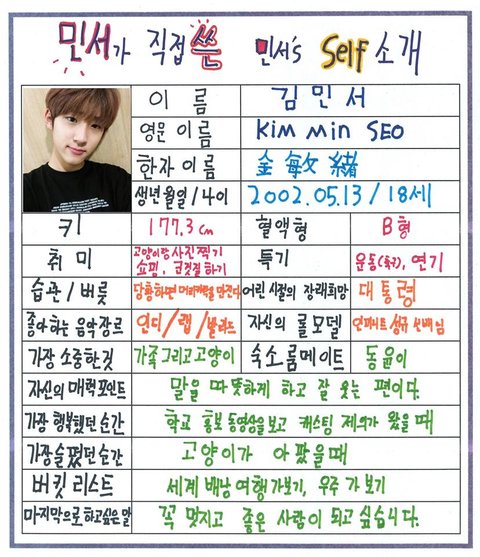 민서가 직접 쓴 민서's Self 소개
이름 김민서
영문 이름 Kim Min SEO
한자 이름 金 敏 緖
생년월일/나이 2002.05.13/18세
키 177.3cm 혈액형 B형
취미 고양이랑 사진찍기 쇼핑, 코젓길하기 특기 운동(축구), 연기
습관/버릇 당황하면 머리카락을 만진다 어린 시절의 장래희망 대통령
좋아하는 음악장르 인디/랩/발라드 자신의 롤모델 인피니트 성규 선배님
가장 소중한것 가족 그리고 고양이 숙소룸메이트 동윤이
자신의 매력포인트 말을 따뜻하게 하고 잘 웃는 편이다.
가장 행복했던 순간 학교 홍보 동영상을 보고 캐스팅 제의가 왔을 때
가장 슬펐던 순간 고양이가 아팠을때
버킷 리스트 세계 배낭 여행 가보기, 우주 가 보기
마지막으로 하고싶은 말 꼭 멋지고 좋은 사람이 되고 싶습니다.